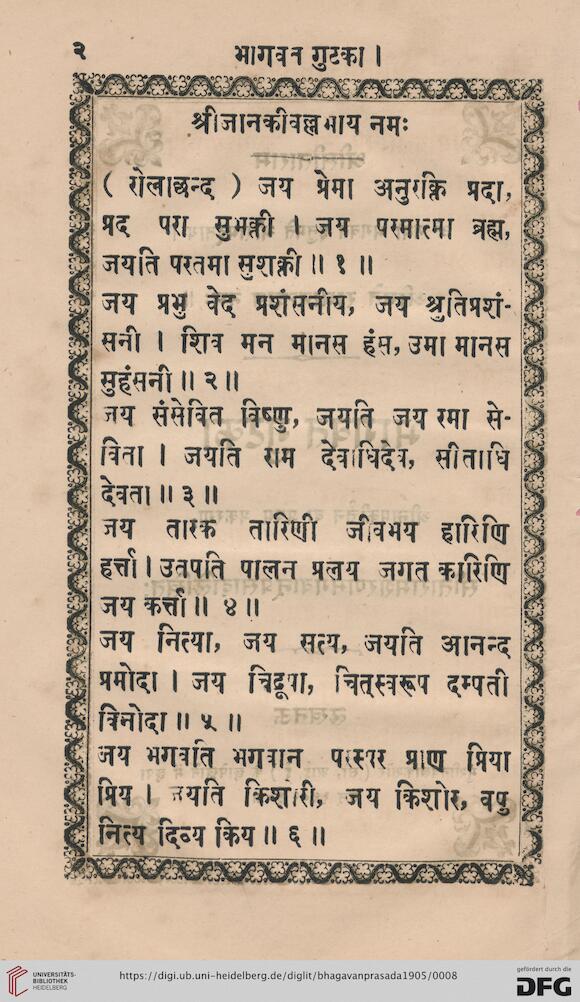 २ भागवत गुटका ।
श्रीजानकीवल्लभाय नमः
( रोलाछन्द ) जय प्रेमा अनुरक्ति प्रदा,
प्रद परा सुभक्ती । जय परमात्मा ब्रह्म,
जयति परतमा सुशक्ती ॥ १ ॥
जय प्रभु वेद प्रशंसनीय, जय श्रुतिप्रशं-
सनी । शिव मन मानस हंस, उमा मानस
सुहंसनी ॥ २ ॥
जय संसेवित विष्णु, जयति जय रमा से-
विता । जयति राम देवाधिदेव, सीताधि
देवता ॥ ३ ॥
जय तारक तारिणी जीवभय हारिणि
हर्त्ता । उतपति पालन प्रलय जगत कारिणि
जय कर्त्ता ॥ ४ ॥
जय नित्या, जय सत्य, जयति आनन्द
प्रमोदा । जय चिद्रूपा, चित्स्वरूप दम्पती
विनोदा ॥ ५ ॥
जय भगवति भगवान परस्पर प्राण प्रिया
प्रिय । जयति किशोरी, जय किशोर, वपु
नित्य दिव्य किय ॥ ६ ॥
UNIVERSITÄTS-
BIBLIOTHEK
HEIDELBERG
https://digi.ub.uni-heidelberg.de/diglit/bhagavanprasada1905/0008
gefördert durch die
DFG